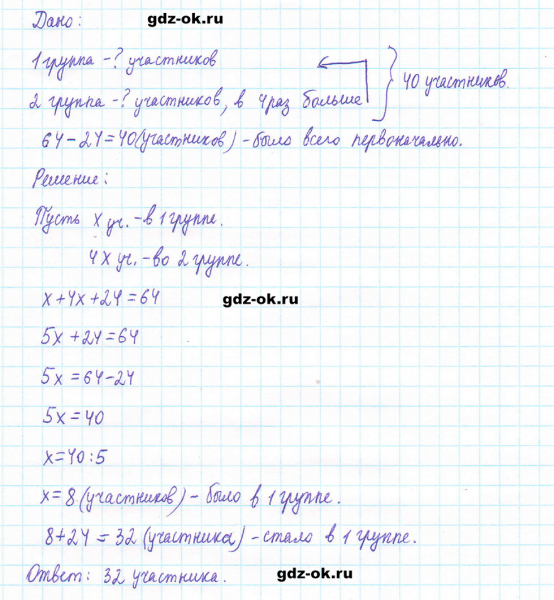 Дано:
gdz-ok.ru
1 группа -? участников
2 группа -? участников, в 4 раз больше
40 участников.
64-24=40(участников) - было всего первоначально.
Решение:
Пусть x уч. - в 1 группе.
4x уч. - во 2 группе.
x+4x+24=64
gdz-ok.ru
5x+24=64
5x=64-24
5x=40
x=40:5
x=8 (участников) - было в 1 группе.
8+24=32 (участника) - стало в 1 группе.
Ответ: 32 участника.
gdz-ok.ru